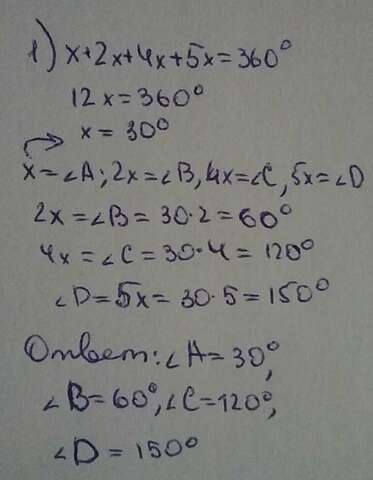 1) x+2x+4x+5x=360°
12x=360°
x=30°
x=∠A; 2x=∠B, 4x=∠C, 5x=∠D
2x=∠B=30·2=60°
4x=∠C=30·4=120°
∠D=5x=30·5=150°
Ответ: ∠A=30°,
∠B=60°, ∠C=120°,
∠D=150°